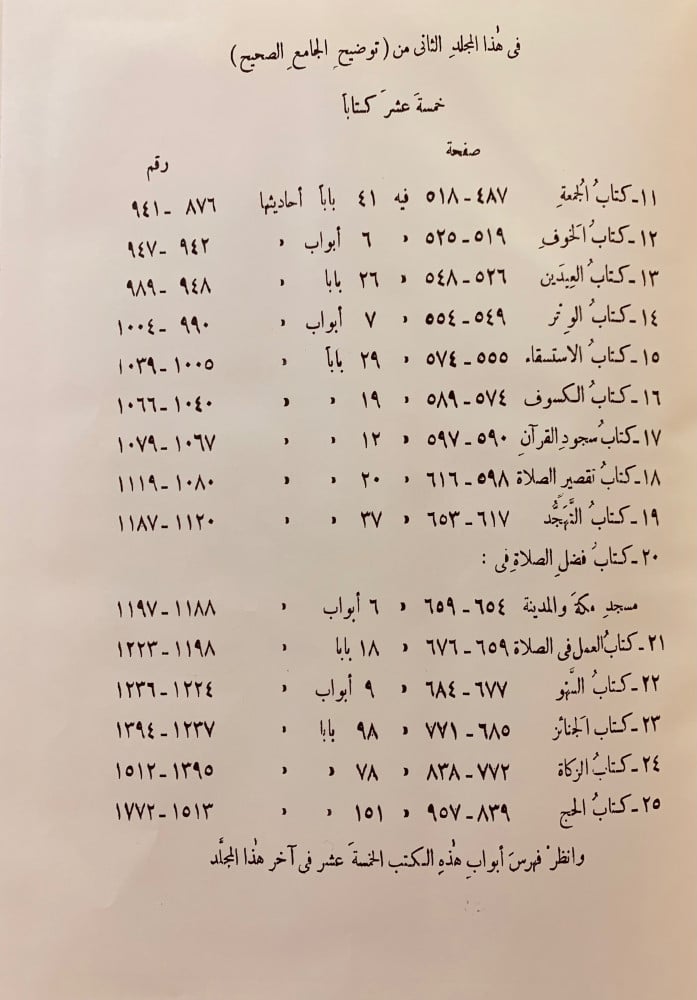 فى هٰذا المجلدِ الثانى من (توضيحِ الجامعِ الصحيح)
خمسةَ عشرَ كتاباً
صفحة رقم
١١ـ كتابُ الجُمعةِ ٤٨٧ـ٥١٨ فيه ٤١ باباً أحاديثها ٨٧٦ ـ٩٤١
١٢ـ كتابُ الخَوفِ ٥١٩ـ٥٢٥ » ٦ أبواب » ٩٤٢ ـ٩٤٧
١٣ـ كتابُ العِيدَين ٥٢٦ـ٥٤٨ » ٢٦ بابا » ٩٤٨ ـ٩٨٩
١٤ـ كتابُ الوِتْر ٥٤٩ـ٥٥٤ » ٧ أبواب » ٩٩٠ ـ١٠٠٤
١٥ـ كتابُ الاستسقاء ٥٥٥ـ٥٧٤ » ٢٩ باباً » ١٠٠٥ـ١٠٣٩
١٦ـ كتابُ الكسوف ٥٧٤ـ٥٨٩ » ١٩ » » ١٠٤٠ـ١٠٦٦
١٧ـ كتابُ سجودِ القرآنِ ٥٩٠ـ٥٩٧ » ١٢ » » ١٠٦٧ـ١٠٧٩
١٨ـ كتابُ تقصيرِ الصلاة ٥٩٨ـ٦١٦ » ٢٠ » » ١٠٨٠ـ١١١٩
١٩ـ كتابُ التَّهَجُّد ٦١٧ـ٦٥٣ » ٣٧ » » ١١٢٠ـ١١٨٧
٢٠ـ كتابُ فضلِ الصلاةِ فى :
مسجدِ مكةَ والمدينة ٦٥٤ـ٦٥٩ » ٦ أبواب » ١١٨٨ـ١١٩٧
٢١ـ كتابُ العمل فى الصلاة ٦٥٩ـ٦٧٦ » ١٨ بابا » ١١٩٨ـ١٢٢٣
٢٢ـ كتابُ السَّهْو ٦٧٧ـ٦٨٤ » ٩ أبواب » ١٢٢٤ـ١٢٣٦
٢٣ـ كتاب الجنائز ٦٨٥ـ٧٧١ » ٩٨ بابا » ١٢٣٧ـ١٣٩٤
٢٤ـ كتابُ الزكاة ٧٧٢ـ٨٣٨ » ٧٨ » » ١٣٩٥ـ١٥١٢
٢٥ـ كتابُ الحج ٨٣٩ـ٩٥٧ » ١٥١ » » ١٥١٣ـ١٧٧٢
وانظرْ فهرسَ أبوابِ هٰذهِ الكتب الخمسةَ عشر فى آخر هٰذا المجلَّد